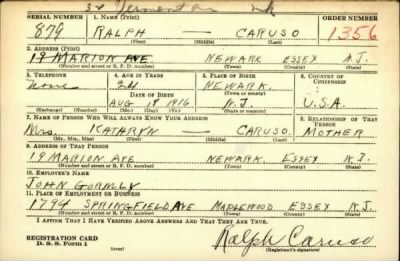 34 Vermont Ave Nk
SERIAL NUMBER 1. NAME (Print) ORDER NUMBER
879 RALPH — CARUSO 1356
(First) (Middle) (Last)
2. ADDRESS (Print)
19 MARION AVE NEWARK ESSEX N.J.
(Number and street or R. F. D. number) (Town) (County) (State)
3. TELEPHONE 4. AGE IN YEARS 5. PLACE OF BIRTH 6. COUNTRY OF CITIZENSHIP
None 24 NEWARK
DATE OF BIRTH (Town or county)
AUG 18 1916 N.J. U.S.A.
(Exchange) (Number) (Mo.) (Day) (Yr.) (State or country)
7. NAME OF PERSON WHO WILL ALWAYS KNOW YOUR ADDRESS 8. RELATIONSHIP OF THAT PERSON
Mrs. KATHRYN — CARUSO MOTHER
(Mr., Mrs., Miss) (First) (Middle) (Last)
9. ADDRESS OF THAT PERSON
19 MARION AVE NEWARK ESSEX N.J.
(Number and street or R. F. D. number) (Town) (County) (State)
10. EMPLOYER'S NAME
JOHN GORMLY
11. PLACE OF EMPLOYMENT OR BUSINESS
1794 SPRINGFIELD AVE MAPLEWOOD ESSEX N.J.
(Number and street or R. F. D. number) (Town) (County) (State)
I AFFIRM THAT I HAVE VERIFIED ABOVE ANSWERS AND THAT THEY ARE TRUE.
REGISTRATION CARD
D. S. S. Form 1 (over) Ralph Caruso
(Registrant's signature)